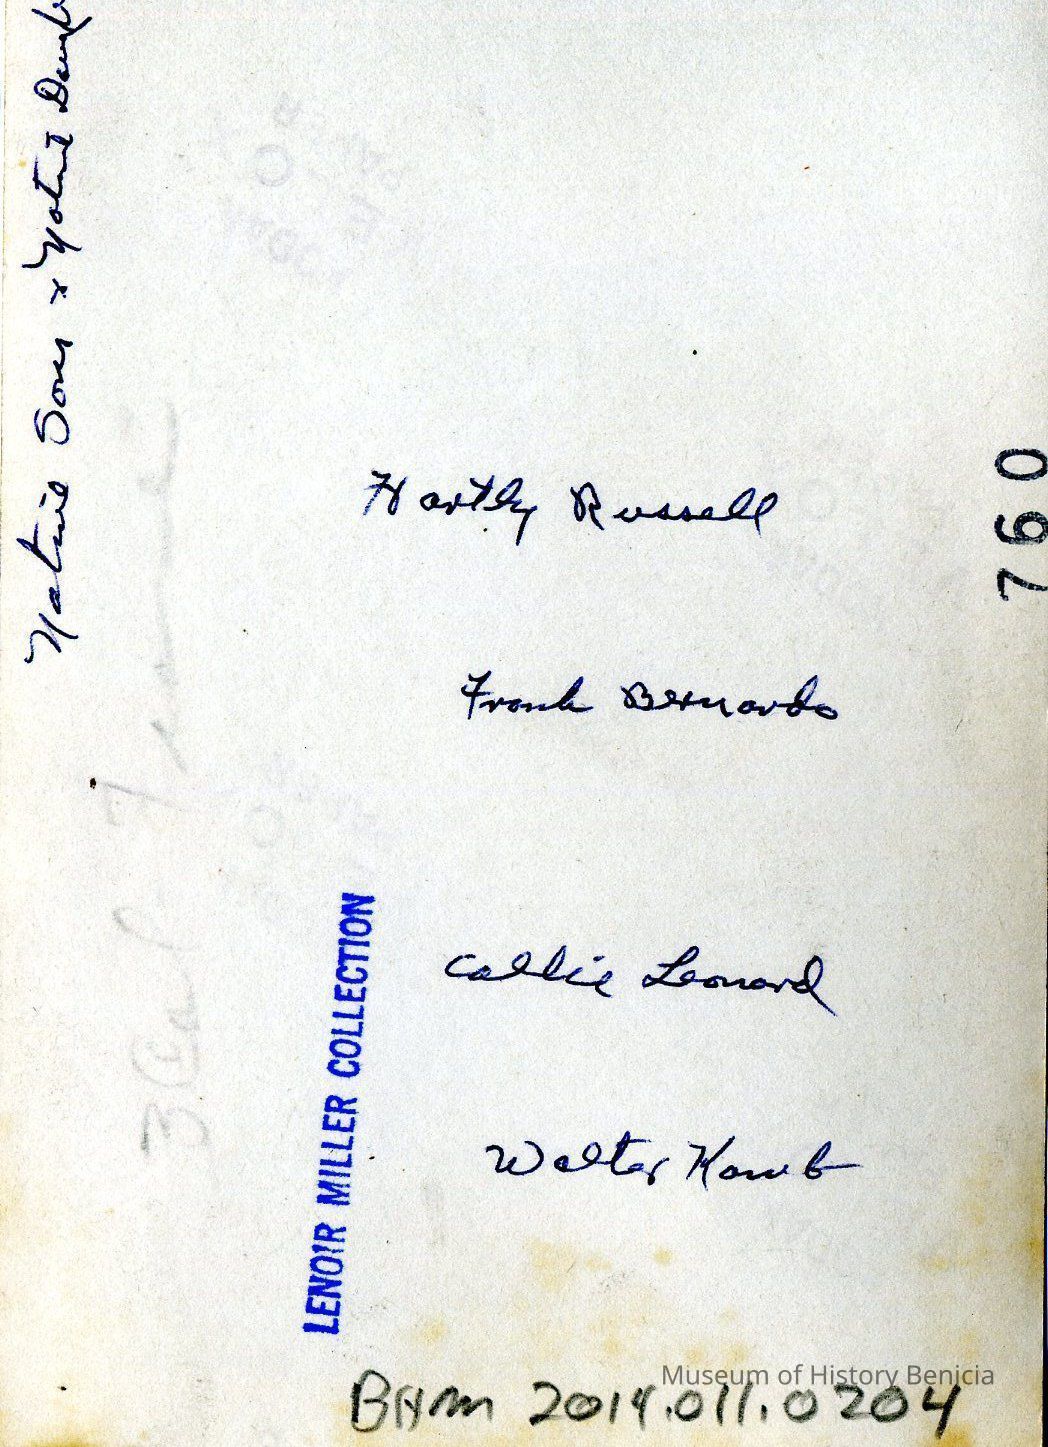 Native Sons & Native Daug
Hartly Russell
760
Frank Bernardo
Callie Leonard
Walter
LENOIR MILLER COLLECTION
Museum of History Benicia
BHM 2014.011.0204